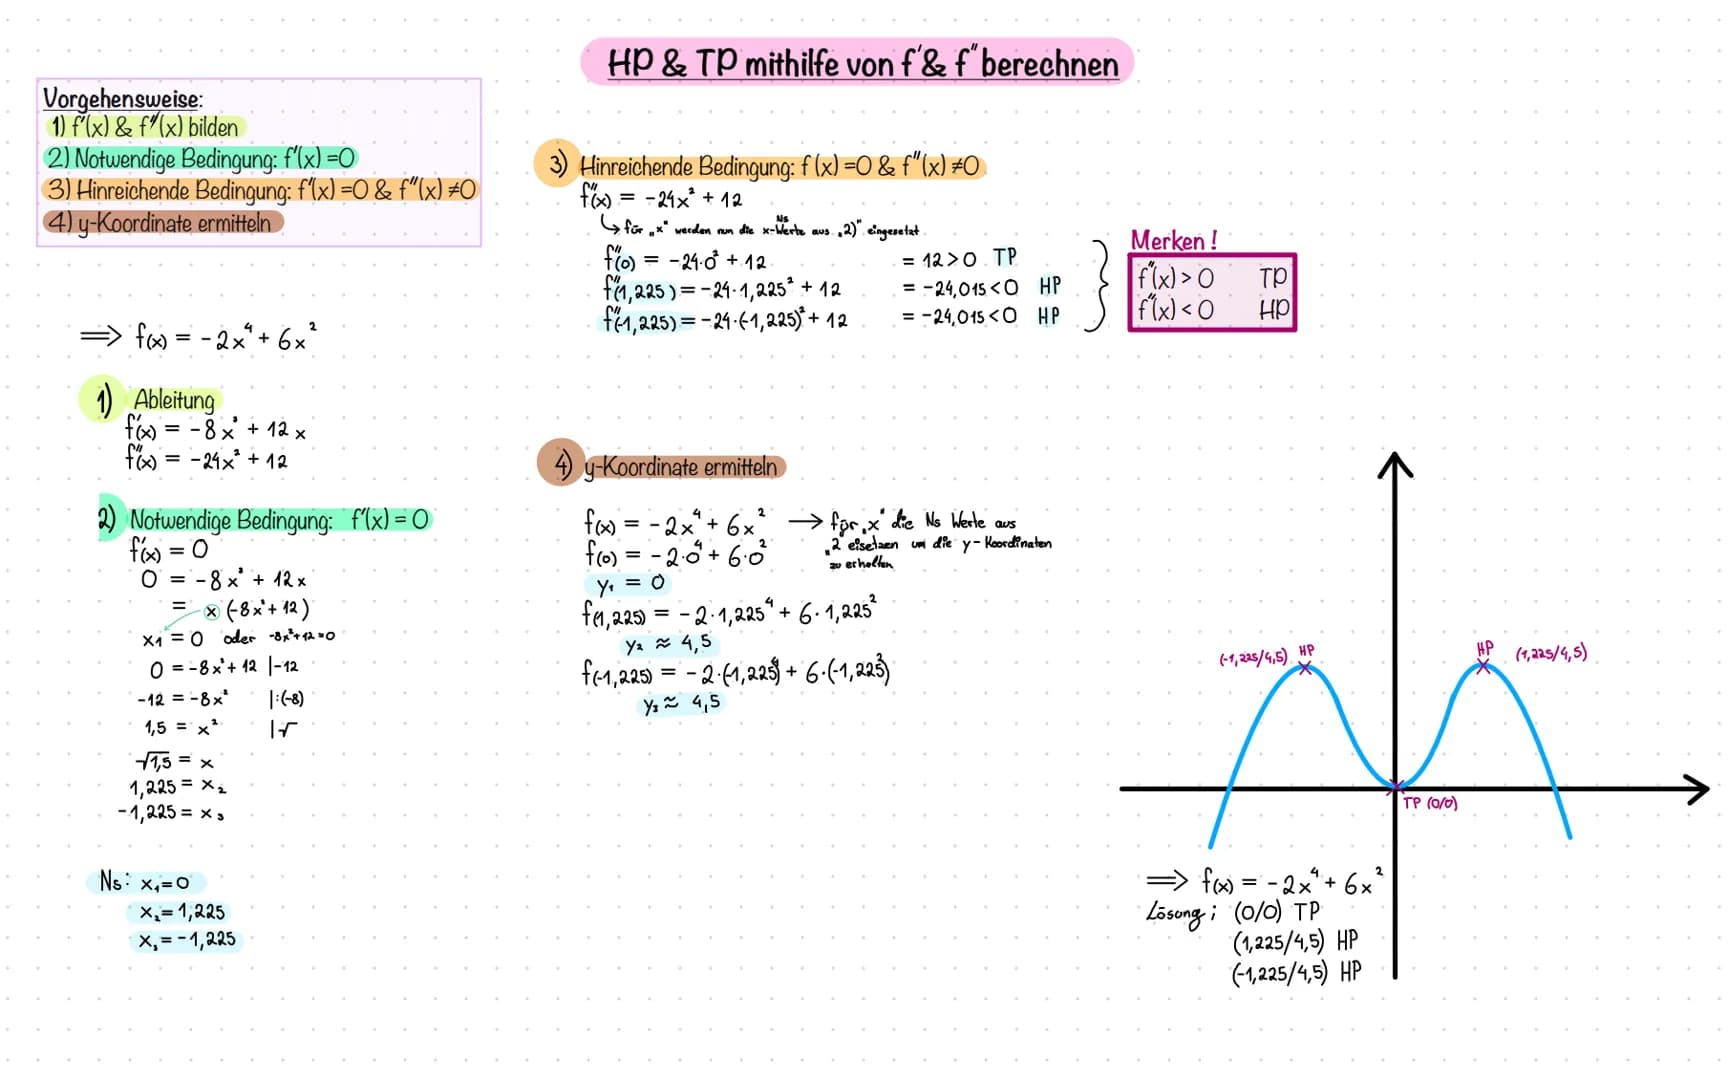 HP & TP mithilfe von f' & f'' berechnen
Vorgehensweise:
1) f'(x) & f''(x) bilden
2) Notwendige Bedingung: f'(x) =0
3) Hinreichende Bedingung: f'(x) =0 & f''(x) ≠0
4) y-Koordinate ermitteln
⟹ f(x) = -2x⁴ + 6x²
1) Ableitung
f'(x) = -8x³ + 12x
f''(x) = -24x² + 12
2) Notwendige Bedingung: f'(x) = 0
f'(x) = 0
0 = -8x³ + 12x
= x (-8x² + 12)
x₁ = 0 oder -8x²+12=0
0 = -8x² + 12 |-12
-12 = -8x² |:(-8)
1,5 = x² |√
√1,5 = x
1,225 = x₂
-1,225 = x₃
Ns: x₁=0
x₂= 1,225
x₃= -1,225
3) Hinreichende Bedingung: f (x) =0 & f''(x) ≠0
f''(x) = -24x² + 12
↳ für „x" werden nun die x-Werte aus „2)" eingesetzt
Ns
f''(0) = -24·0² + 12 = 12>0 TP
f''(1,225) = -24·1,225² + 12 = -24,015<0 HP
f''(-1,225) = -24·(-1,225)² + 12 = -24,015<0 HP
Merken !
f''(x) > 0 TP
f''(x) < 0 HP
4) y-Koordinate ermitteln
f(x) = -2x⁴ + 6x² → für „x" die Ns Werte aus
„2 eisetzen um die y-Koordinaten
zu erhalten
f(0) = -2·0⁴ + 6·0²
y₁ = 0
f(1,225) = -2·1,225⁴ + 6·1,225²
y₂ ≈ 4,5
f(-1,225) = -2·(-1,225)⁴ + 6·(-1,225)²
y₃ ≈ 4,5
(-1,225/4,5) HP
HP (1,225/4,5)
TP (0/0)
⟹ f(x) = -2x⁴ + 6x²
Lösung: (0/0) TP
(1,225/4,5) HP
(-1,225/4,5) HP